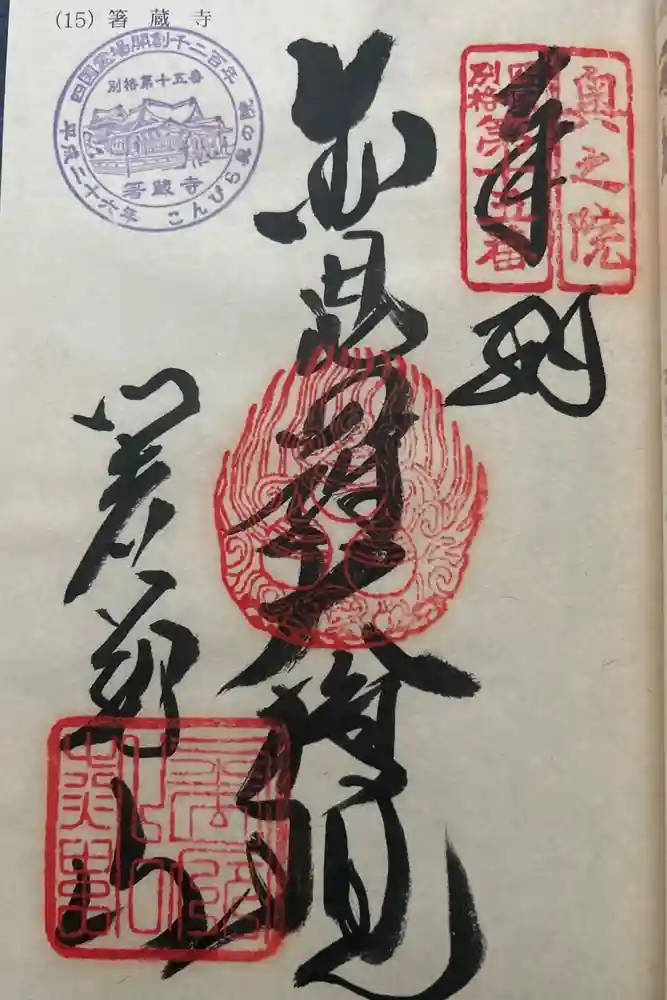 (15) 箸蔵寺
四国霊場開創千二百年
別格第十五番
箸蔵寺
平成二十六年
こんぴら奥の院
奥之院
四国
別格
第十五番
奉
金毘羅大権現
箸蔵